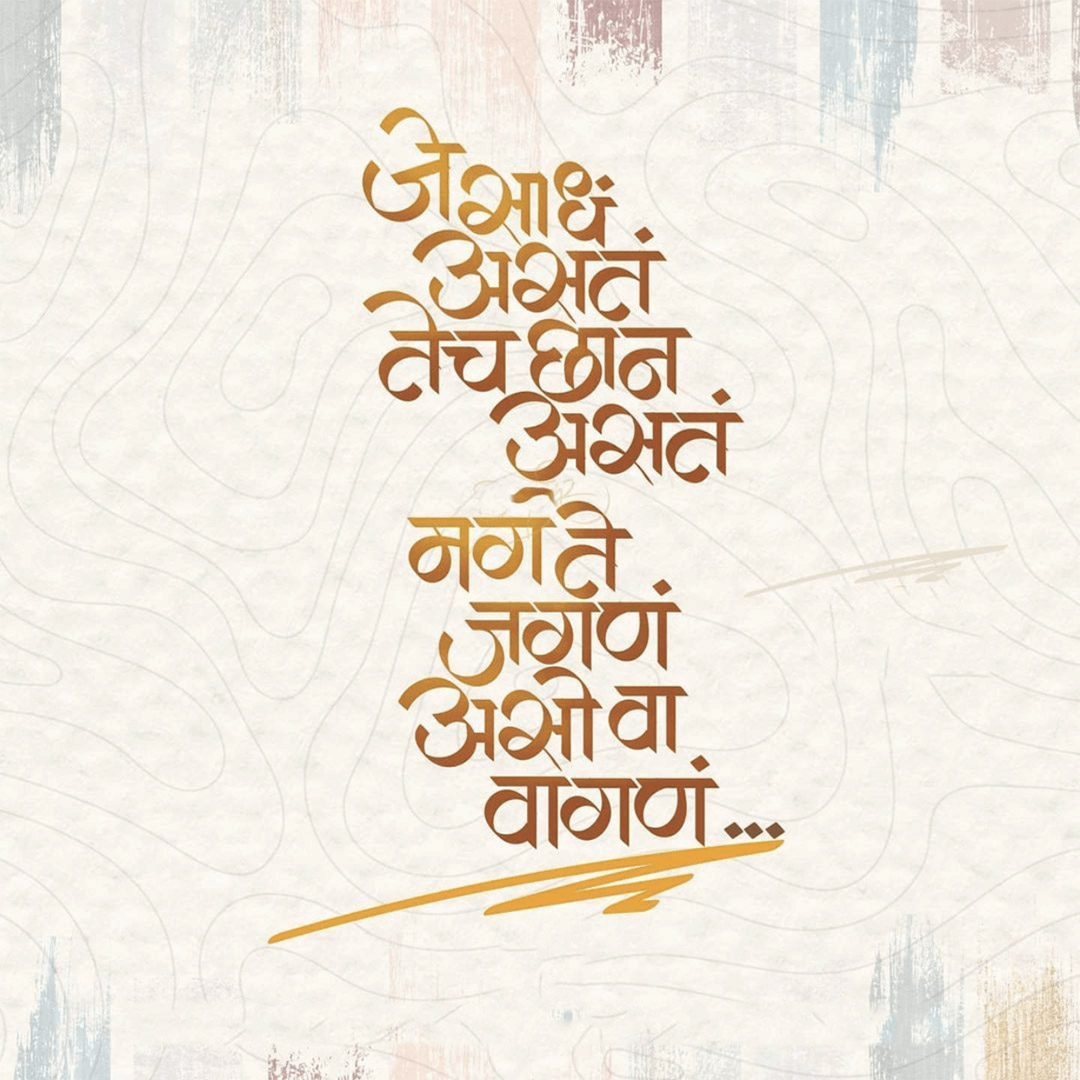 जे साधं
असतं
तेच छान
असतं
मग ते
जगणं
असो वा
वागणं...